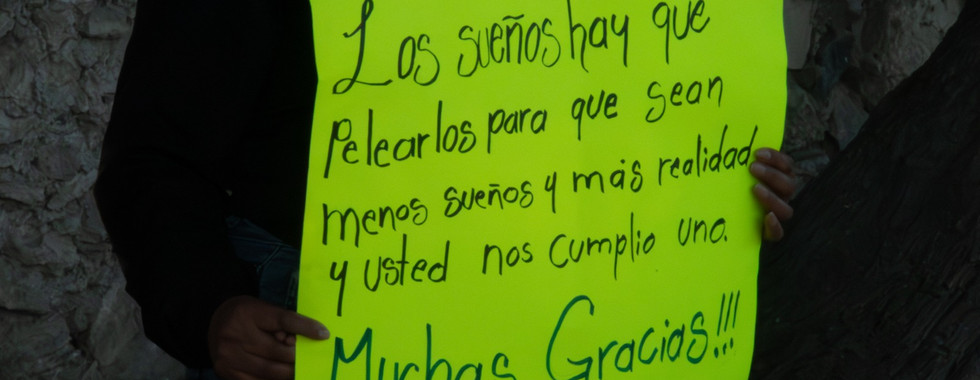 Los sueños hay que
Pelearlos para que sean
menos sueños y más realidad
y usted nos cumplio uno.
Muchas Gracias!!!